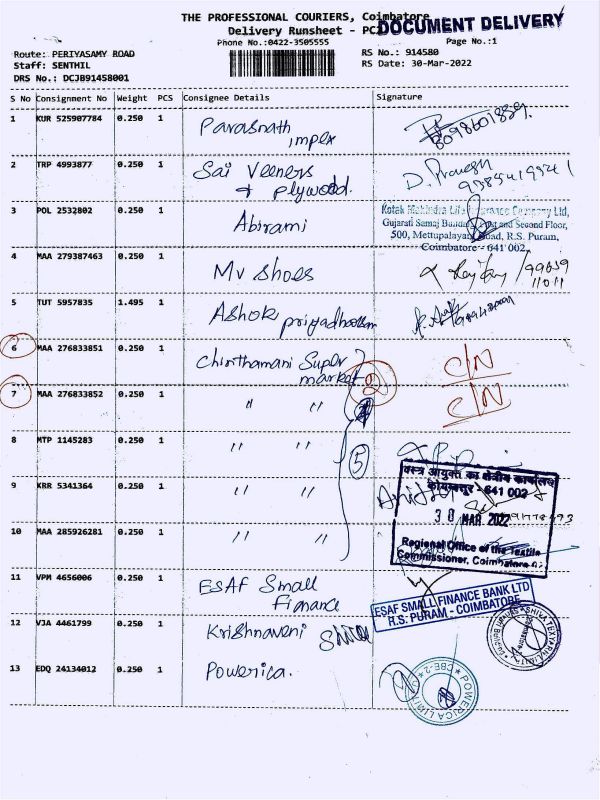 THE PROFESSIONAL COURIERS, Coimbatore
Delivery Runsheet - PC
DOCUMENT DELIVERY
Phone No.:0422-3505555
Page No.:1
Route: PERIYASAMY ROAD
RS No.: 914580
Staff: SENTHIL
RS Date: 30-Mar-2022
DRS No.: DCJB91458001
S No Consignment No Weight PCS Consignee Details Signature
1 KUR 525907784 0.250 1 Parasnath impex
2 TRP 4993877 0.250 1 Sai Veeners & plywood.
3 POL 2532802 0.250 1 Abirami
Kotak Mahindra Life Insurance Company Ltd,
Gujarati Samaj Building, First and Second Floor,
500, Mettupalayam Road, R.S. Puram,
Coimbatore - 641 002
4 MAA 279387463 0.250 1 MV Shoes
5 TUT 5957835 1.495 1 Ashok priyadharsan
6 MAA 276833851 0.250 1 Chinthamani Super market C/N
7 MAA 276833852 0.250 1 " " 2 C/N
8 MTP 1145283 0.250 1 " " 5
वस्त्र आयुक्त का क्षेत्रीय कार्यालय
कोयम्बत्तूर - 641 002
9 KRR 5341364 0.250 1 " "
30 MAR 2022
10 MAA 285926281 0.250 1 " "
Regional Office of the Textile
Commissioner, Coimbatore
11 VPM 4656006 0.250 1 ESAF Small Finance
ESAF SMALL FINANCE BANK LTD
R.S. PURAM - COIMBATORE
12 VJA 4461799 0.250 1 Krishnaveni
13 EDQ 24134012 0.250 1 Powerica.
POWERICA LIMITED
CBE-2